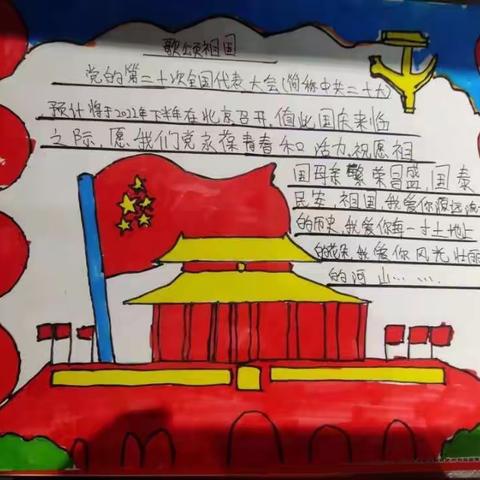 歌颂祖国
党的第二十次全国代表大会(简称中共二十大)
预计将于2022年下半年在北京召开,值此,国庆来临
之际,愿我们党永葆青春和活力,祝愿祖
国母亲繁荣昌盛,国泰
民安,祖国,我爱你源远流
的历史,我爱你每一寸土地上
的花朵,我爱你风光壮丽
的河山……